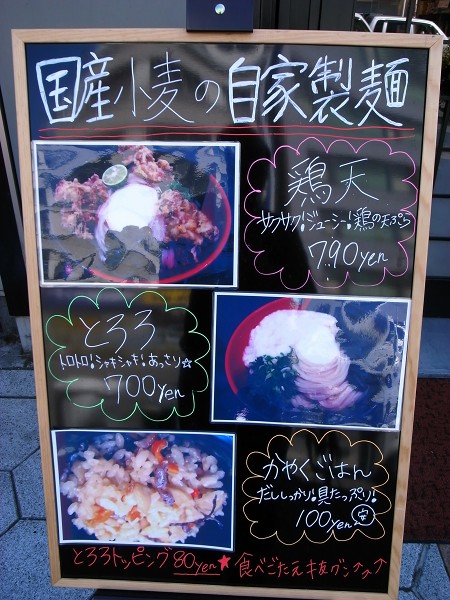 国産小麦の自家製麺
鶏天
サクサク!ジューシー!鶏の天ぷら
790yen
とろろ
トロトロ!シャキシャキ!あっさり☆
700yen
かやくごはん
だししっかり!具たっぷり!
100yen
とろろトッピング80yen★食べごたえ